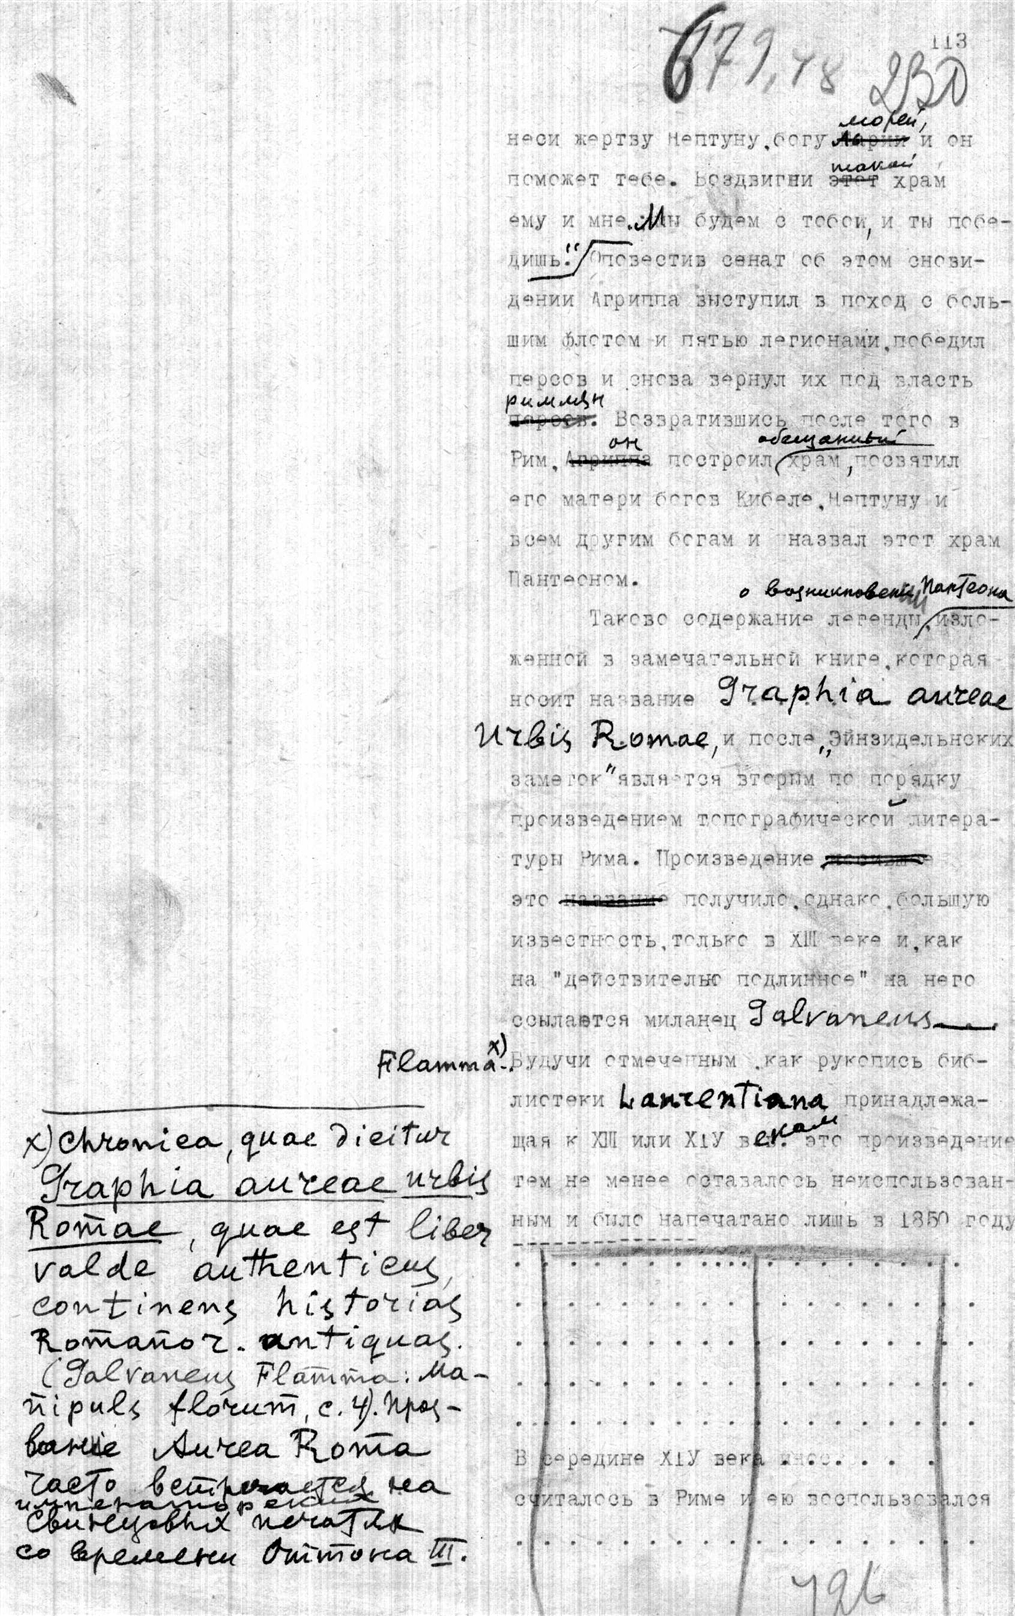 113
679,48 230
морей,
неси жертву Нептуну, богу Марии и он
такой
поможет тебе. Воздвигни этот храм
ему и мне. Мы будем с тобой, и ты побе-
дишь." Оповестив сенат об этом снови-
дении Агриппа выступил в поход с боль-
шим флотом и пятью легионами, победил
персов и снова вернул их под власть
римлян
персов. Возвратившись после того в
он обещанный
Рим, Агриппа построил храм, посвятил
его матери богов Кибеле, Нептуну и
всем другим богам и назвал этот храм
Пантеоном.
о возникновении Пантеона
Таково содержание легенды, изло-
женной в замечательной книге, которая
носит название Graphia aureae
Urbis Romae, и после „Эйнзидельнских
заметок" является вторым по порядку
произведением топографической литера-
туры Рима. Произведение
это название получило, однако, большую
известность, только в XIII веке и, как
на "действительно подлинное" на него
ссылается миланец Galvaneus
Flamma x). Будучи отмеченным, как рукопись биб-
лиотеки Laurentiana принадлежа-
щая к XIII или XIУ векам это произведение
тем не менее оставалось неиспользован-
ным и было напечатано лишь в 1850 году
x) Chronica, quae dicitur
Graphia aureae urbis
Romae, quae est liber
valde authenticus,
continens historias
Romanor. antiquas.
(Galvaneus Flamma: Ma-
nipuls florum, c. 4). Проз-
вание Aurea Roma
часто встречается на
императорских
свинцовых печатях
со времени Оттона III.
В середине XIУ века
считалось в Риме и ею воспользовался
426